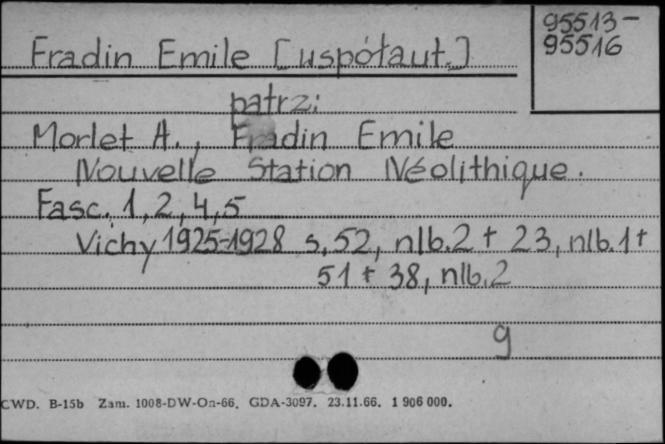 95513-
95516
Fradin Emile [współaut.]
patrz:
Morlet A., Fradin Emile
Nouvelle Station Néolithique.
Fasc. 1, 2, 4, 5
Vichy 1925-1928 s, 52, nlb. 2 + 23, nlb. 1 +
51 + 38, nlb. 2
9
CWD. B-15b Zam. 1008-DW-On-66. GDA-3097. 23.11.66. 1 906 000.